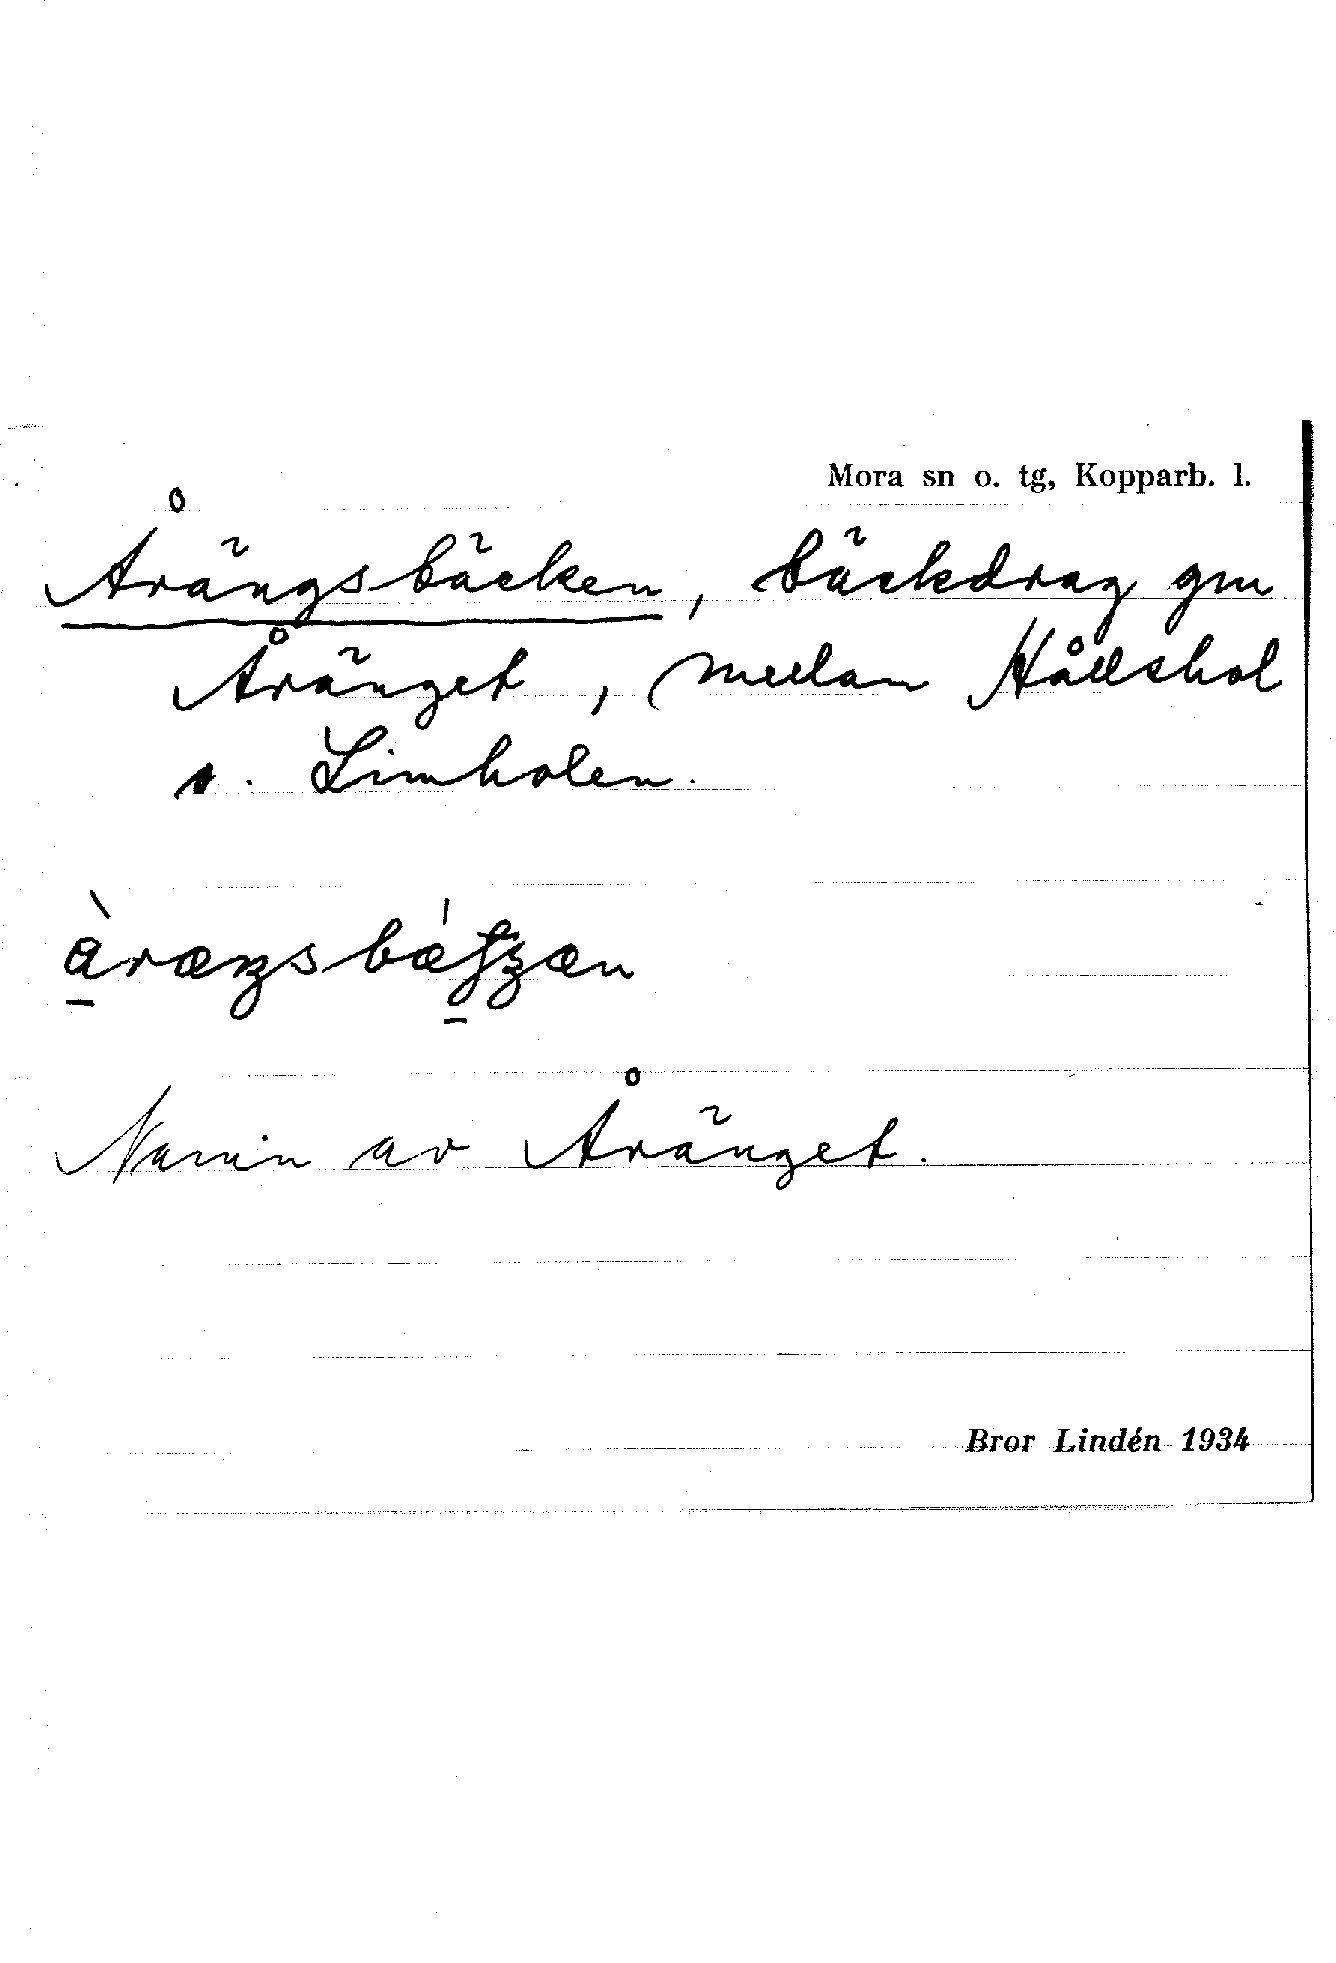 Mora sn o. tg, Kopparb. l.
Årängsbäcken, bäckdrag gm
Åränget, mellan Hållshol
o. Limholen.
Namn av Åränget.
Bror Lindén 1934